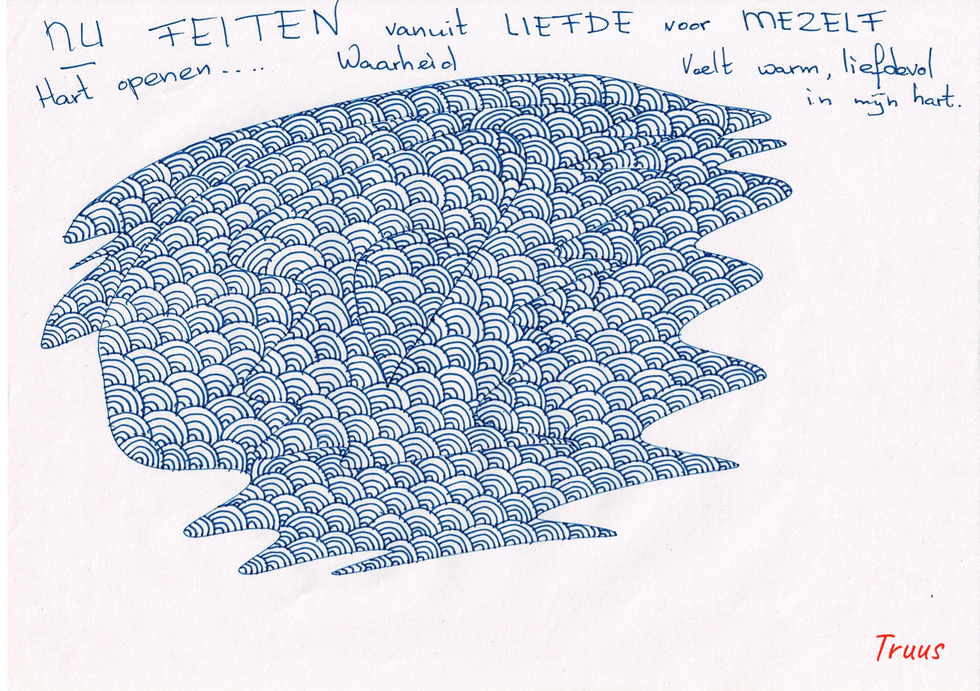 NU FEITEN vanuit LIEFDE voor MEZELF
Hart openen.... Waarheid Voelt warm, liefdevol
in mijn hart.
Truus